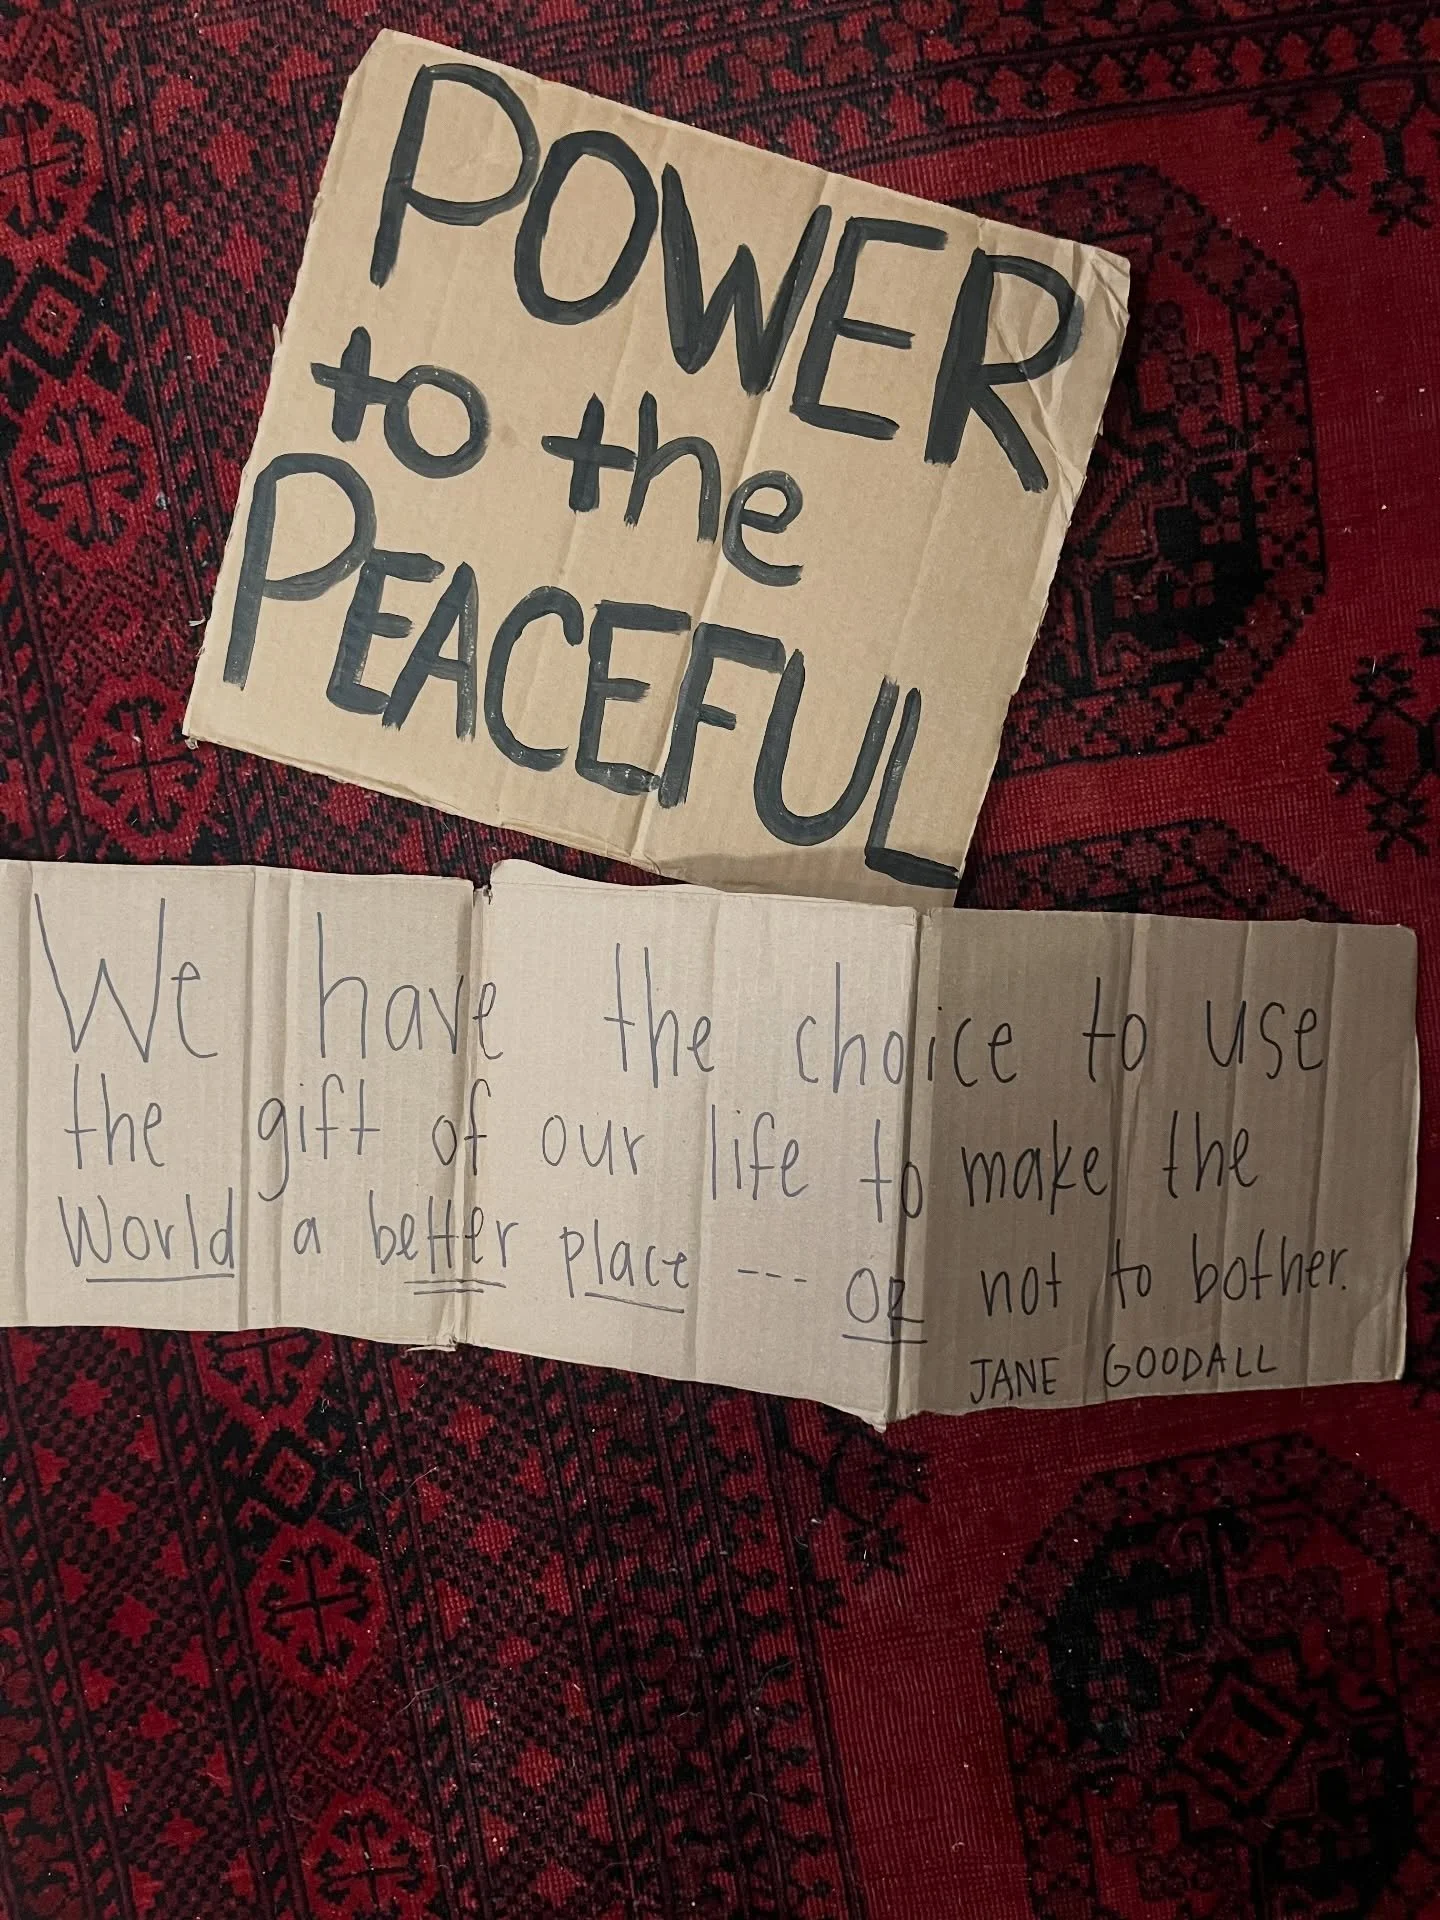 POWER
to the
PEACEFUL
We have the choice to use
the gift of our life to make the
World a better place --- OR not to bother.
JANE GOODALL